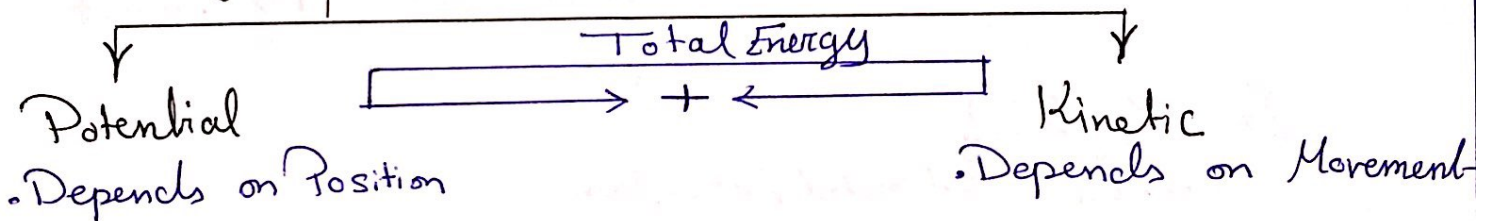 Total Energy
+
Potential
Kinetic
.Depends on Position
.Depends on Movement